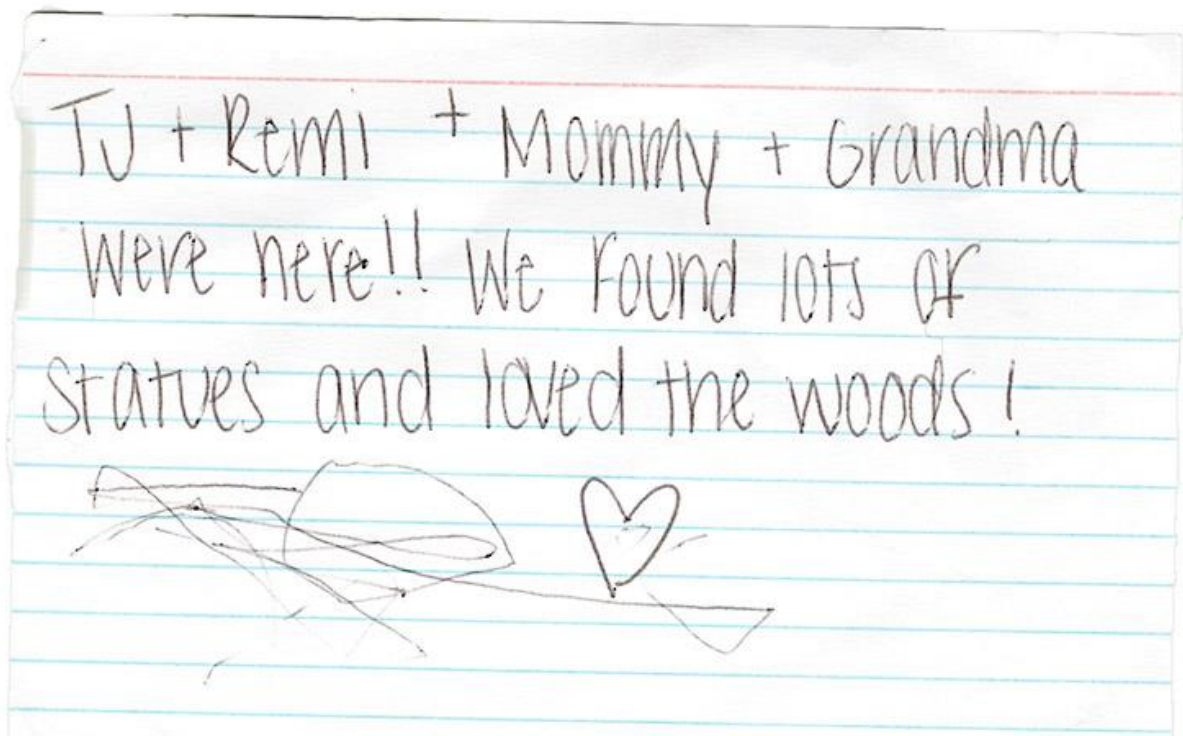 TJ + Remi + Mommy + Grandma
were here!! We found lots of
statues and loved the woods!